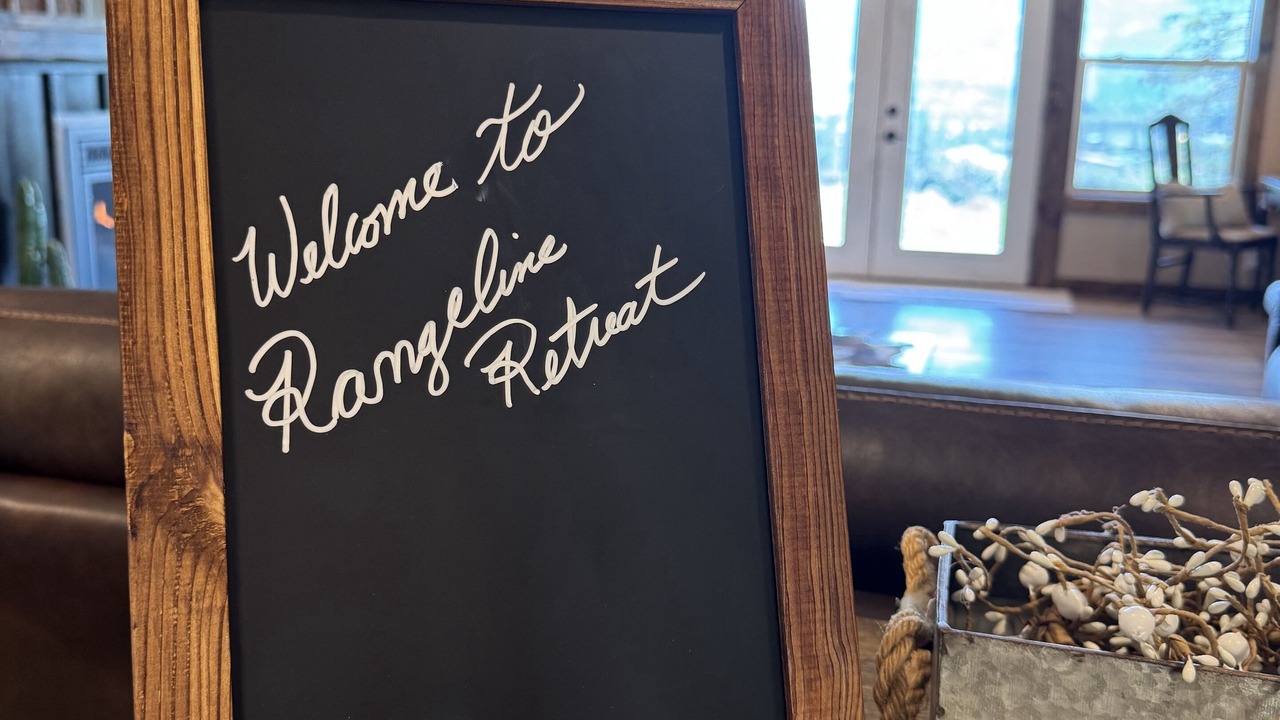 Welcome to
Rangeline
Retreat